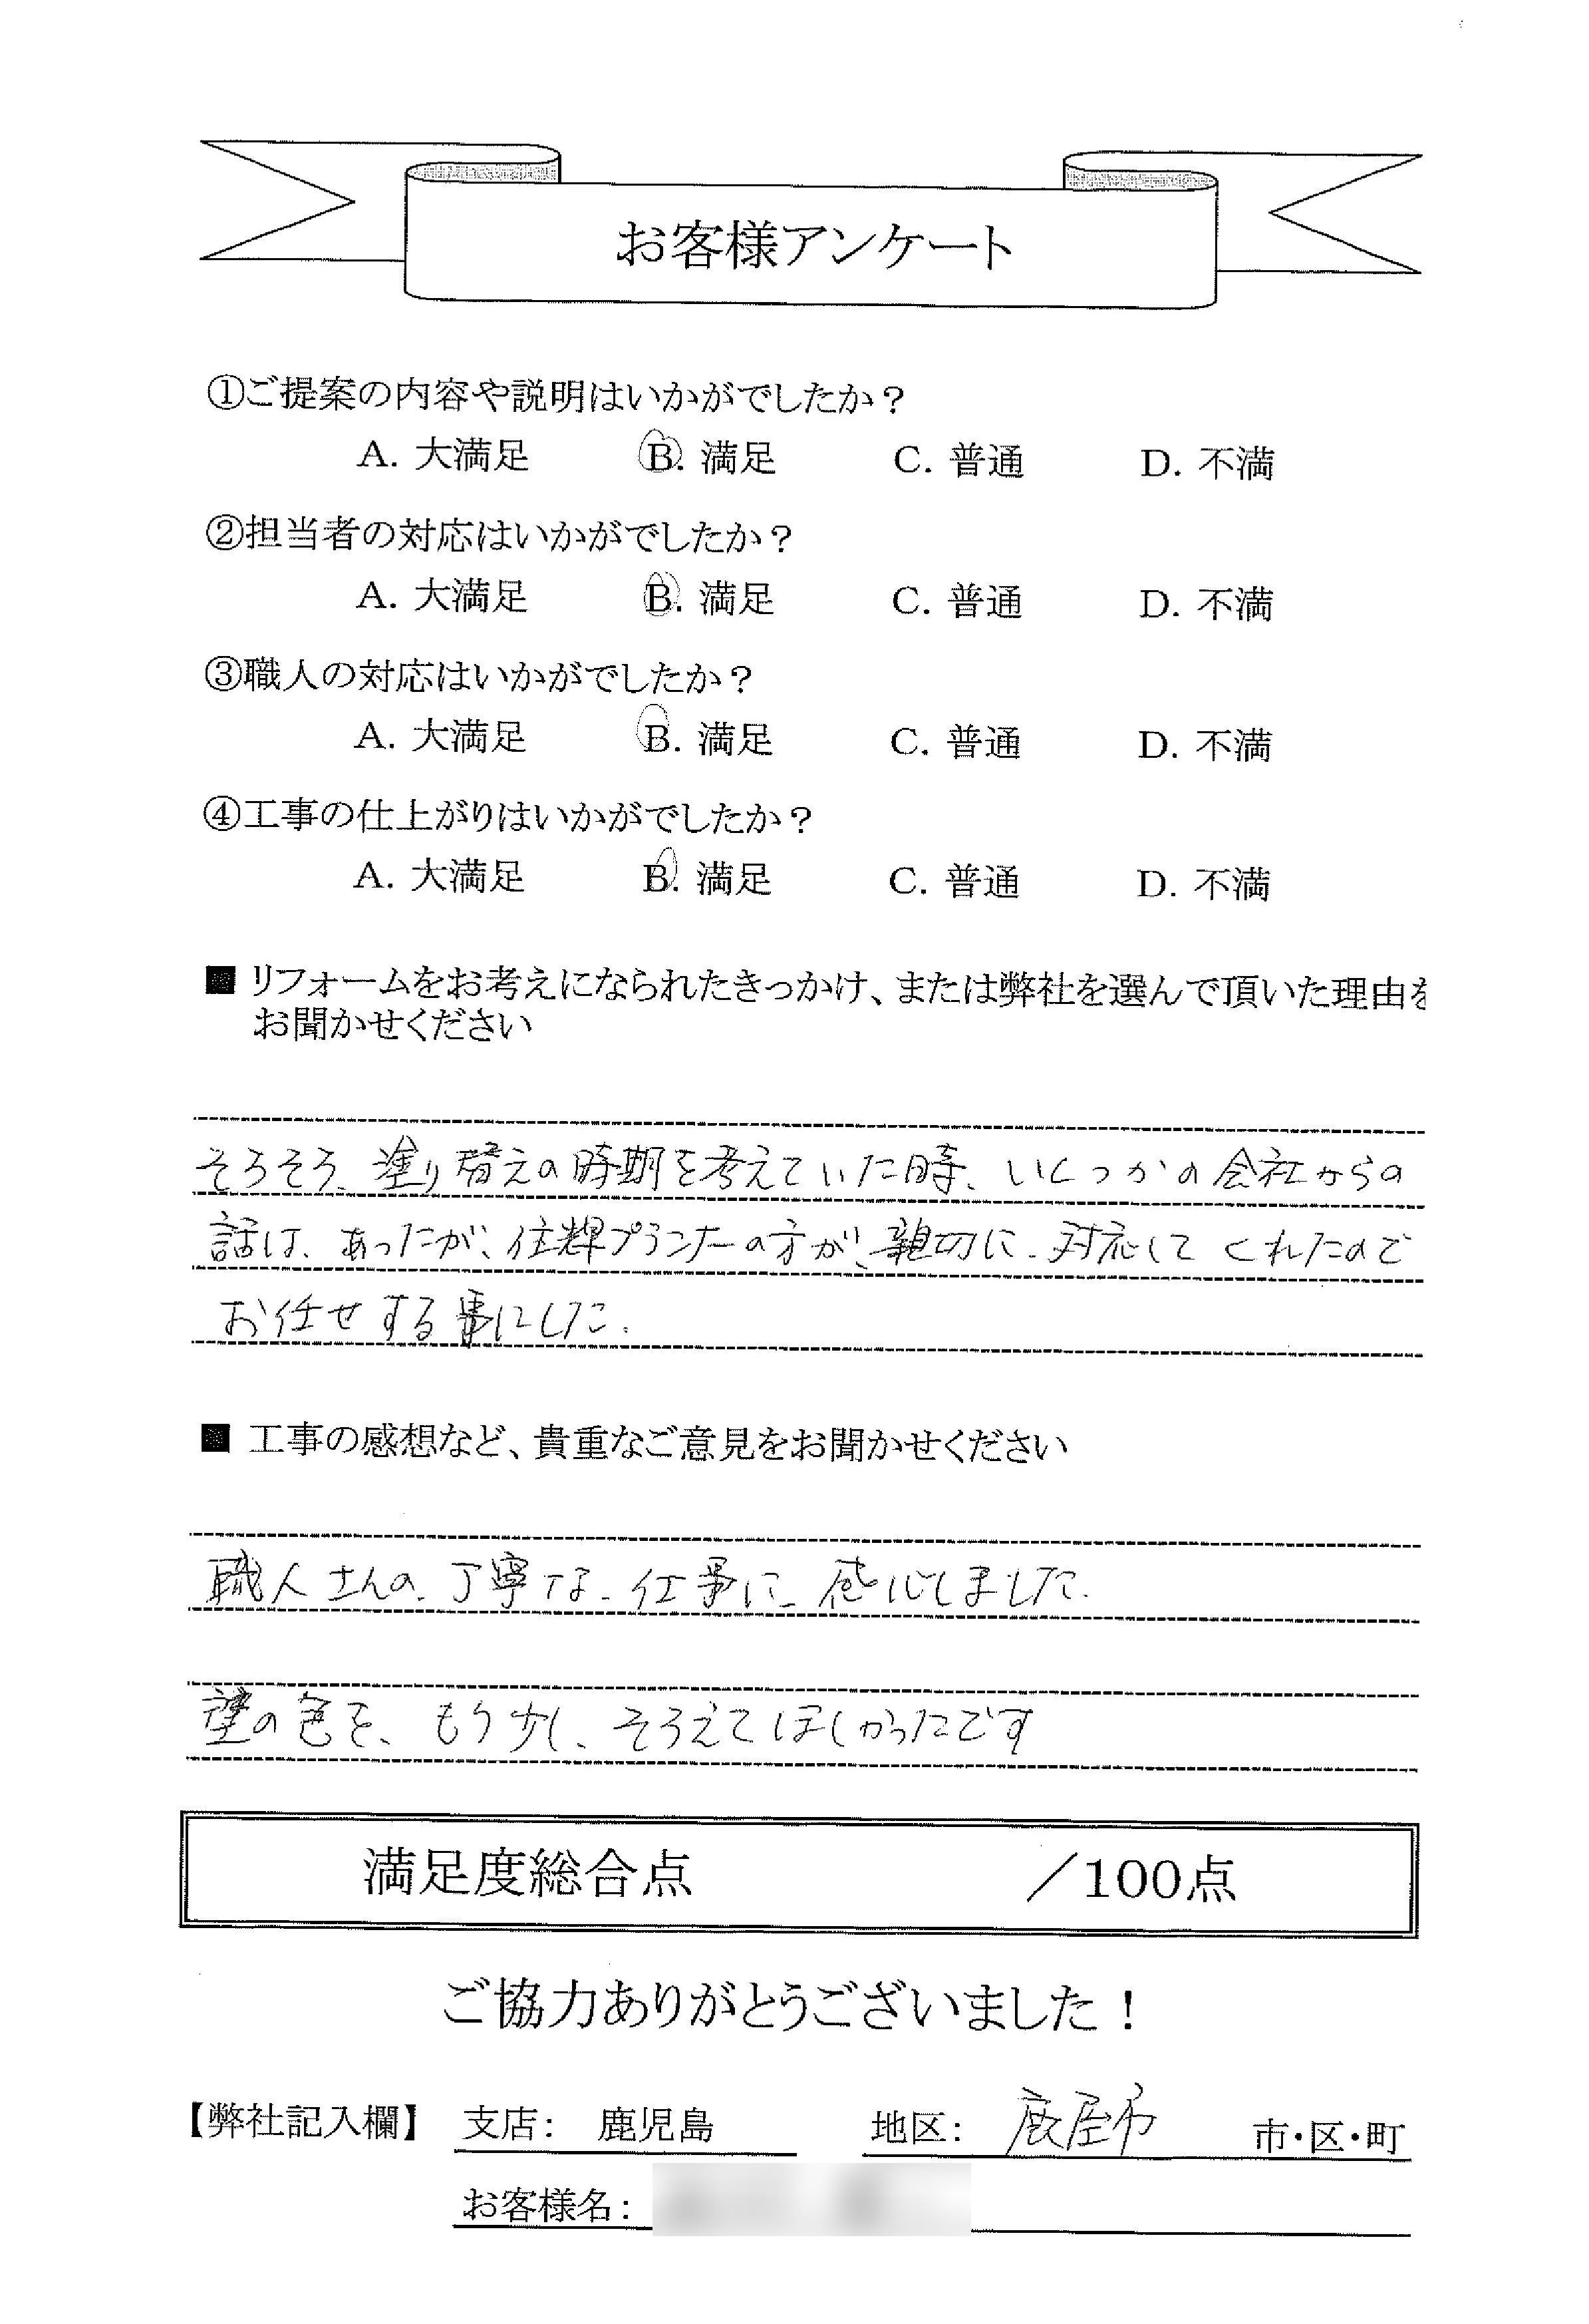 お客様アンケート
①ご提案の内容や説明はいかがでしたか?
A. 大満足 B. 満足 C. 普通 D. 不満
②担当者の対応はいかがでしたか?
A. 大満足 B. 満足 C. 普通 D. 不満
③職人の対応はいかがでしたか?
A. 大満足 B. 満足 C. 普通 D. 不満
④工事の仕上がりはいかがでしたか?
A. 大満足 B. 満足 C. 普通 D. 不満
■ リフォームをお考えになられたきっかけ、または弊社を選んで頂いた理由を
お聞かせください
そろそろ、塗り替えの時期を考えていた時、いくつかの会社からの
話は、あったが、住輝プランナーの方が、親切に、対応してくれたので
お任せする事にした.
■ 工事の感想など、貴重なご意見をお聞かせください
職人さんの、丁寧な、仕事に、感心しました.
の色を、もう少し、そろえてほしかったです
満足度総合点 /100点
ご協力ありがとうございました!
【弊社記入欄】 支店: 鹿児島 地区: 鹿屋市 市・区・町
お客様名: